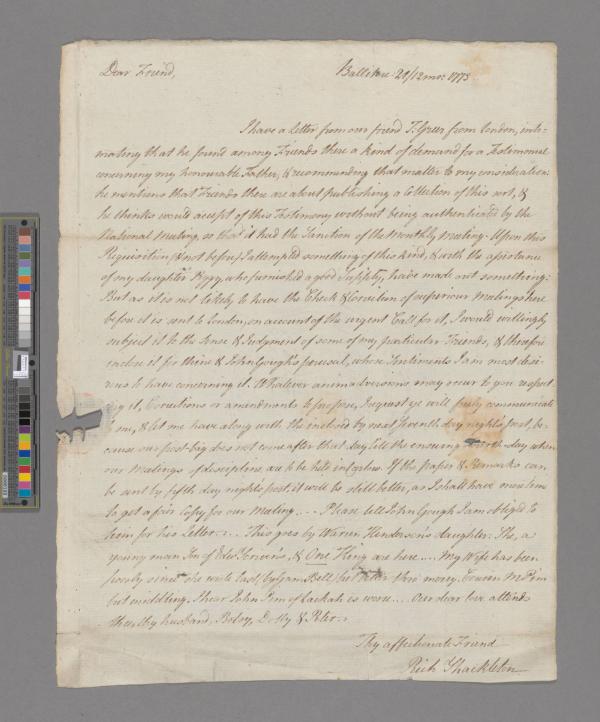 Dear Friend,
Ballitore 20/12mo: 1775
I have a Letter from our friend T: Greer from London, inti-
mating that he found among Friends there a kind of demand for a Testimony
concerning my honourable Father, & recommending that matter to my consideration:
he mentions that Friends there are about publishing a Collection of this sort, &
he thinks would accept of this Testimony without being authenticated by the
National Meeting, so that it had the Sanction of the Monthly Meeting. Upon this
Requisition (& not before) I attempted something of this kind, & with the assistance
of my daughter Peggy, who furnished a good Supply, have made out something:
But as it is not likely to have the Check & Correction of superiour Meetings here
before it is sent to London, on account of the urgent Call for it, I would willingly
subject it to the Sense & Judgment of some of my particular Friends, & therefore
enclose it for thine & John Gough's perusal, whose Sentiments I am most desi-
rous to have concerning it. Whatever animadversions may occur to you respect
ing it, Corrections or amendments to propose, I request ye will freely communicate
to me, & let me have along with the inclosed by next seventh day night's post, be-
cause our post-bag does not come after that day till the ensuing day when
our Meetings of discipline are to be held in Carlow. If the paper & Remarks can
be sent by fifth day night's post, it will be still better, as I shall have more time
to get a fair Copy for our Meeting.... Please tell John Gough I am obliged to
him for his Letter... This goes by Warren Henderson's daughter: She, a
young man Son of Edw. & One King are here.... My Wife has been
poorly since she wrote last, by Sam. Bell: but better this morng. Cousin M Pim
but middling. I hear John Pim of Lackah is worse.... Our dear love attends
thee, thy husband, Betsy, Dolly & Peter.
Thy affectionate Friend
Rich Shackleton